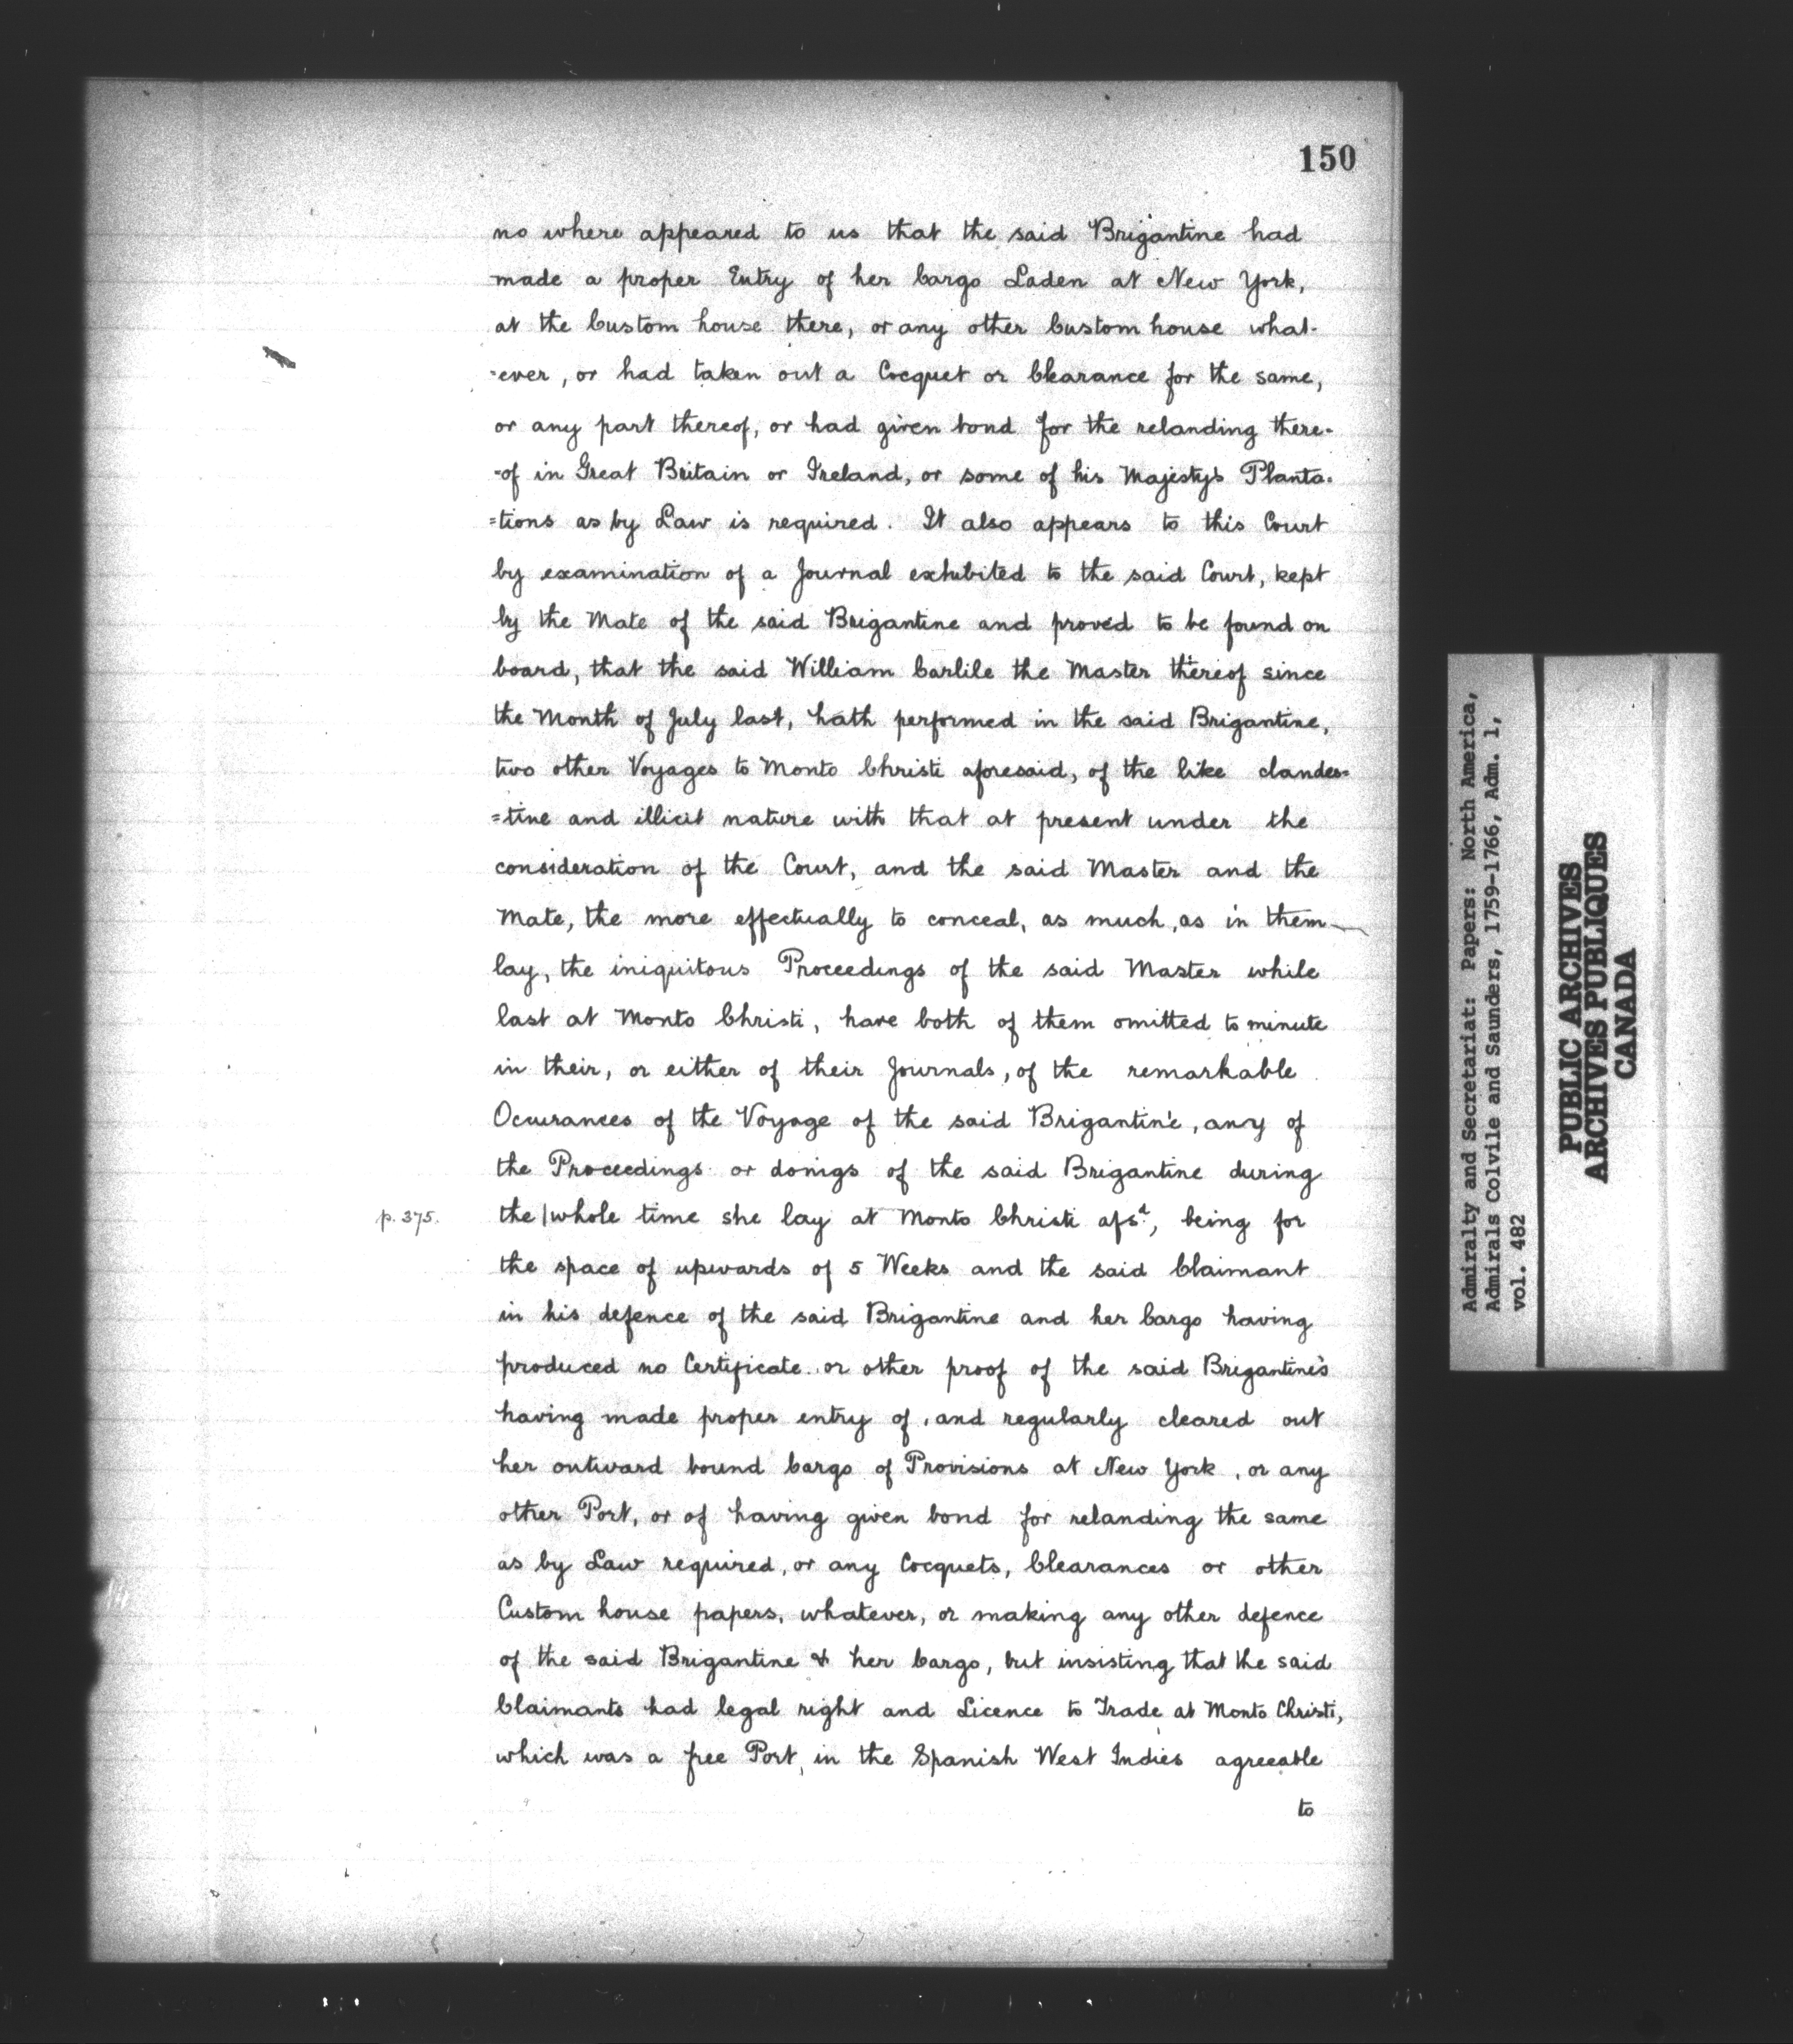 150
no where appeared to us that the said Brigantine had
made a proper Entry of her Cargo Laden at New York,
at the Custom house there, or any other Custom house what-
=ever, or had taken out a Cocquet or Clearance for the same,
or any part thereof, or had given bond for the relanding there-
=of in Great Britain or Ireland, or some of his Majesty's Planta-
=tions as by Law is required. It also appears to this Court
by examination of a Journal exhibited to the said Court, kept
by the Mate of the said Brigantine and proved to be found on
board, that the said William Carlile the Master thereof since
the Month of July last, hath performed in the said Brigantine,
two other Voyages to Monto Christi aforesaid, of the like clandes-
=tine and illicit nature with that at present under the
consideration of the Court, and the said Master and the
Mate, the more effectually to conceal, as much, as in them
lay, the iniquitous Proceedings of the said Master while
last at Monto Christi, have both of them omitted to minute
in their, or either of their Journals, of the remarkable
Occurances of the Voyage of the said Brigantine, any of
the Proceedings or doings of the said Brigantine during
p. 375. the | whole time she lay at Monto Christi afsd., being for
the space of upwards of 5 Weeks and the said Claimant
in his defence of the said Brigantine and her Cargo having
produced no Certificate or other proof of the said Brigantine's
having made proper entry of, and regularly cleared out
her outward bound Cargo of Provisions at New York, or any
other Port, or of having given bond for relanding the same
as by Law required, or any Cocquets, Clearances or other
Custom house papers, whatever, or making any other defence
of the said Brigantine & her Cargo, but insisting that the said
Claimants had legal right and Licence to Trade at Monto Christi,
which was a free Port, in the Spanish West Indies agreeable
to
Admiralty and Secretariat: Papers: North America,
Admirals Colvile and Saunders, 1759-1766, Adm. 1,
vol. 482
PUBLIC ARCHIVES
ARCHIVES PUBLIQUES
CANADA